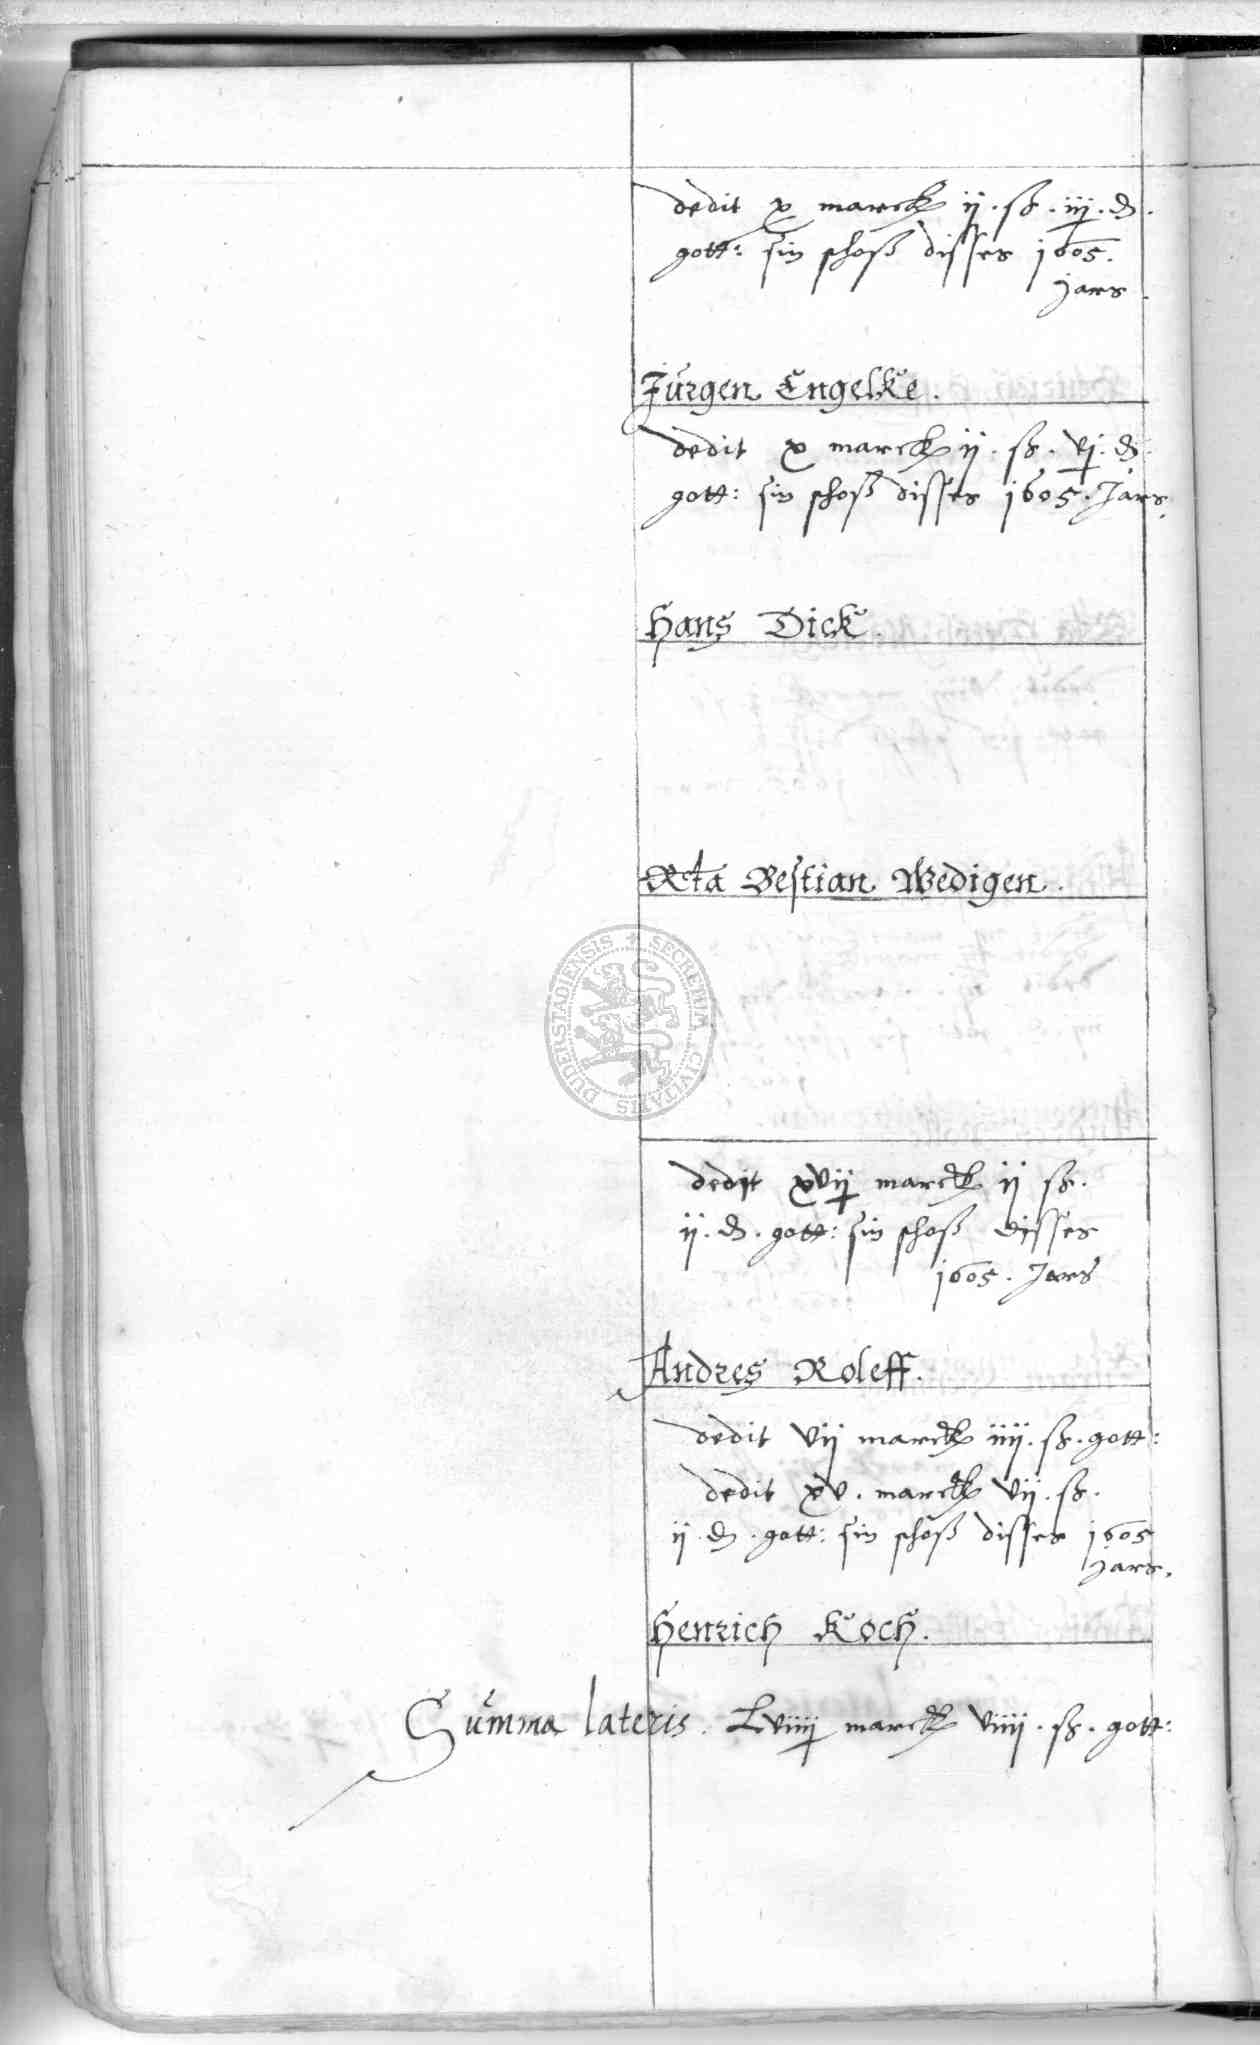 dedit x marck ij . ß . iij . d .
gott: sin schoß disses 1605 .
Jars .
Jürgen Engelke .
dedit x marck ij . ß . vj . d .
gott: sin schoß disses 1605 . Jars .
Hans Dick .
Rta Bestian Wedigen .
SECRETUM CIVITATIS DUDERSTADIENSIS
dedit xvij marck ij ß .
ij . d . gott: sin schoß disses
1605 . Jars
Andres Roleff .
dedit vij marck iiij . ß . gott:
dedit xv . marck vij . ß .
ij . d . gott: sin schoß disses 1605
Jars .
Henrich Koch .
Summa lateris . Lviiij marck viiij . ß . gott: